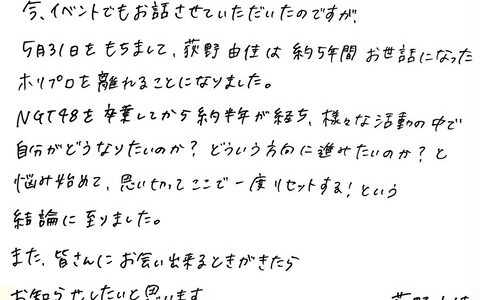 今、イベントでもお話させていただいたのですが、
5月31日をもちまして、荻野由佳は約5年間お世話になった
ホリプロを離れることになりました。
NGT48を卒業してから約半年が経ち、様々な活動の中で
自分がどうなりたいのか？どういう方向に進みたいのか？と
悩み始めて、思い切ってここで一度リセットする！という
結論に至りました。
また、皆さんにお会い出来るときがきたら
お知らせしたいと思います